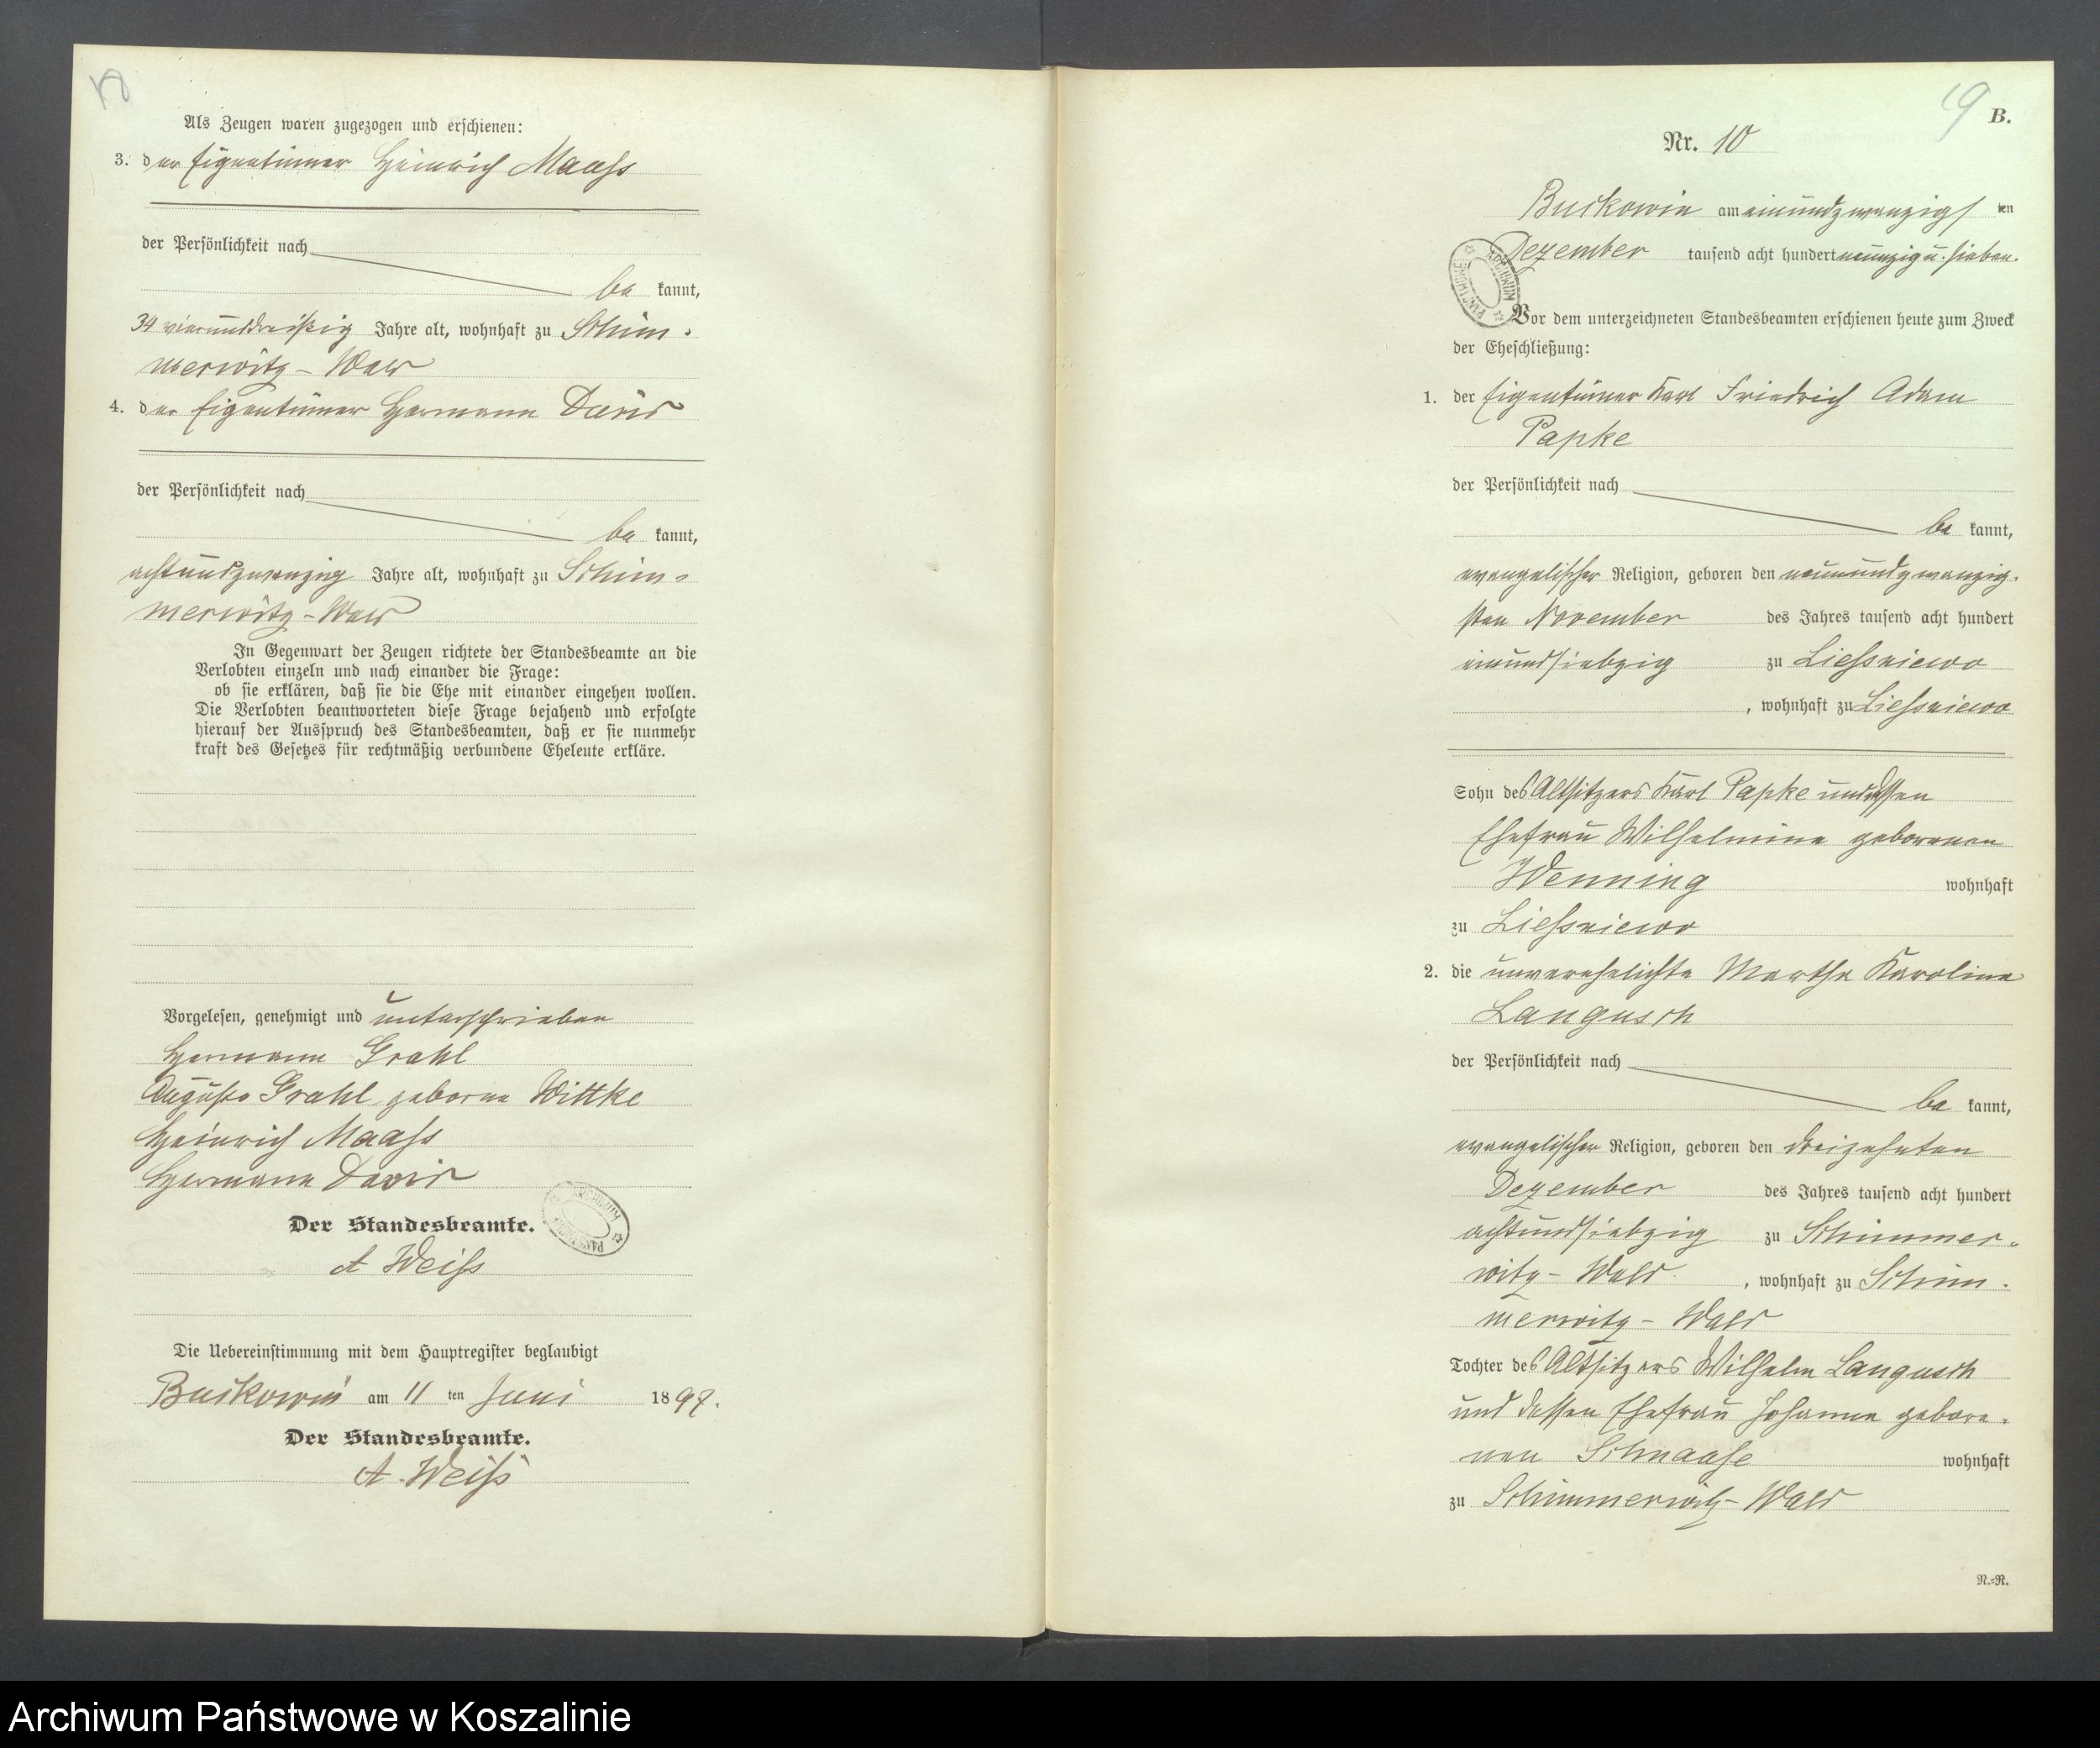 18
Als Zeugen waren zugezogen und erschienen:
3. der Eigentümer Heinrich Maaß
der Persönlichkeit nach
be kannt,
34 vierunddreißig Jahre alt, wohnhaft zu Schim-
merwitz-Wald
4. der Eigentümer Hermann David
der Persönlichkeit nach
be kannt,
achtundzwanzig Jahre alt, wohnhaft zu Schim-
merwitz-Wald
In Gegenwart der Zeugen richtete der Standesbeamte an die
Verlobten einzeln und nach einander die Frage:
ob sie erklären, daß sie die Ehe mit einander eingehen wollen.
Die Verlobten beantworteten diese Frage bejahend und erfolgte
hierauf der Ausspruch des Standesbeamten, daß er sie nunmehr
kraft des Gesetzes für rechtmäßig verbundene Eheleute erkläre.
Vorgelesen, genehmigt und unterschrieben
Hermann Grahl
Auguste Grahl geborne Wittke
Heinrich Maaß
Hermann David
Der Standesbeamte.
A Weiß
Die Uebereinstimmung mit dem Hauptregister beglaubigt
Buckowin am 11 ten Juni 1897.
Der Standesbeamte.
A. Weiß
19
B.
Nr. 10
Buckowin am einundzwanzigs ten
Dezember tausend acht hundert neunzig u. sieben.
Vor dem unterzeichneten Standesbeamten erschienen heute zum Zweck
der Eheschließung:
1. der Eigentümer Karl Friedrich Adam
Papke
der Persönlichkeit nach
be kannt,
evangelischer Religion, geboren den neunundzwanzig-
sten November des Jahres tausend acht hundert
einundsiebzig zu Ließniewo
, wohnhaft zu Ließniewo
Sohn des Altsitzers Karl Papke und dessen
Ehefrau Wilhelmine geborenen
Wenning wohnhaft
zu Ließniewo
2. die unverehelichte Martha Karoline
Langusch
der Persönlichkeit nach
be kannt,
evangelischer Religion, geboren den dreizehnten
Dezember des Jahres tausend acht hundert
achtundsiebzig zu Schimmer-
witz-Wald , wohnhaft zu Schim-
merwitz-Wald
Tochter des Altsitzers Wilhelm Langusch
und dessen Ehefrau Johanna gebore-
nen Schnaase wohnhaft
zu Schimmerwitz-Wald
N.-R.
Archiwum Państwowe w Koszalinie